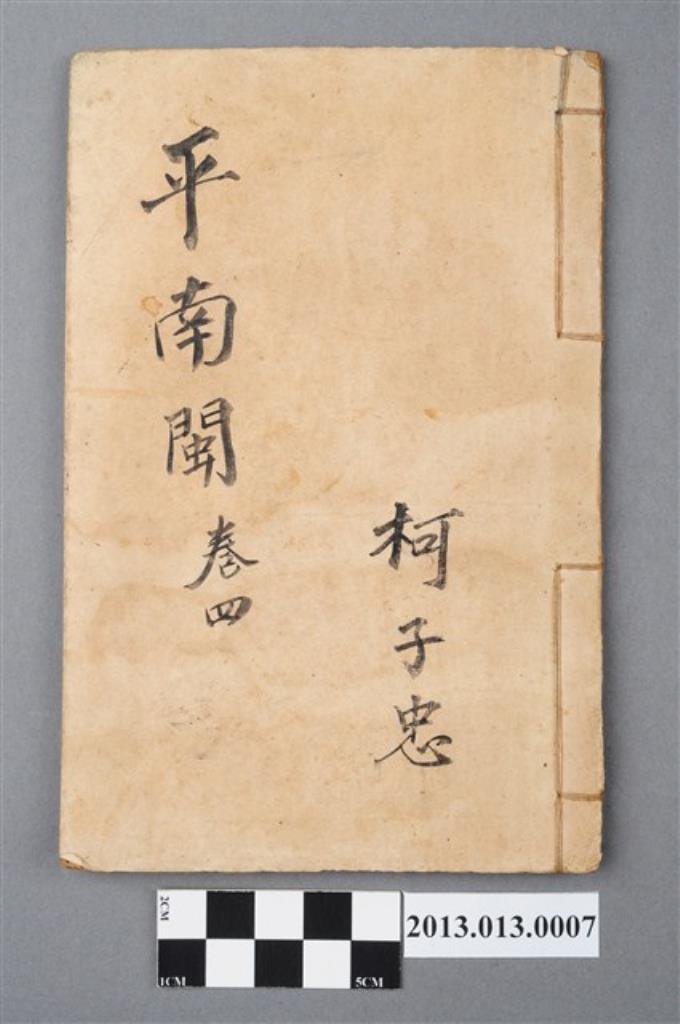 平南閩卷四
柯子忠
2CM
1CM
5CM
2013.013.0007